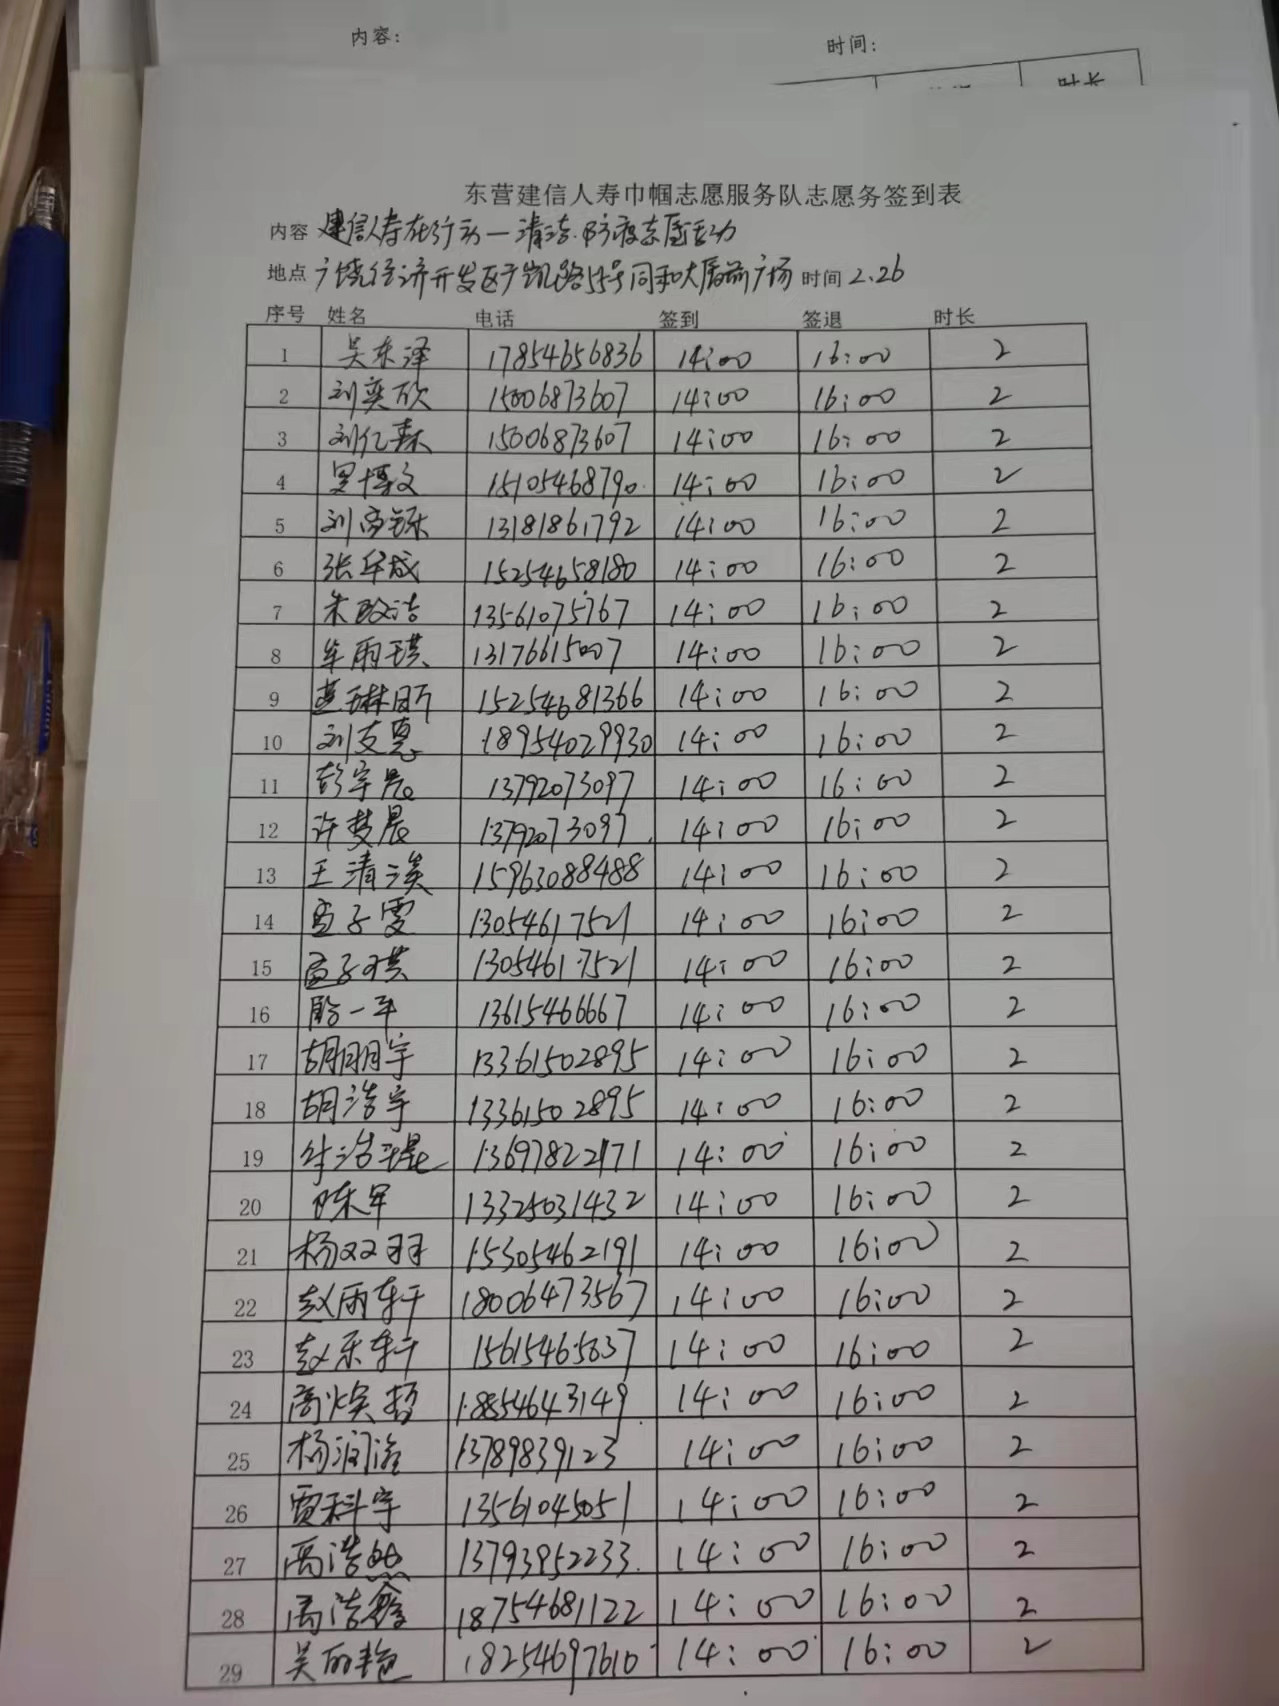 内容：
时间：
时长
东营建信人寿巾帼志愿服务队志愿务签到表
内容 建信人寿在行动一清洁.防疫志愿活动
地点 广饶经济开发区广凯路55号同和大厦前广场 时间 2.26
序号 姓名 电话 签到 签退 时长
1 吴东泽 17854656836 14:00 16:00 2
2 刘奕欣 15006873607 14:00 16:00 2
3 刘亿森 15006873607 14:00 16:00 2
4 博文 15105468790 14:00 16:00 2
5 刘 13181861792 14:00 16:00 2
6 张华成 15254658180 14:00 16:00 2
7 朱政洁 13561075767 14:00 16:00 2
8 牟雨琪 13176615007 14:00 16:00 2
9 燕琳昕 15254681366 14:00 16:00 2
10 刘友恩 18954029930 14:00 16:00 2
11 彭宇晨 13792073097 14:00 16:00 2
12 许梦晨 13792073097 14:00 16:00 2
13 王清漢 15963088488 14:00 16:00 2
14 孟子雯 13054617521 14:00 16:00 2
15 孟子琪 13054617521 14:00 16:00 2
16 一平 13615466667 14:00 16:00 2
17 胡明宇 13361502895 14:00 16:00 2
18 胡浩宇 13361502895 14:00 16:00 2
19 牟浩琨 13697822171 14:00 16:00 2
20 陈军 13325031432 14:00 16:00 2
21 杨双羽 15305462191 14:00 16:00 2
22 赵雨轩 18006473567 14:00 16:00 2
23 赵乐轩 15615465637 14:00 16:00 2
24 高焕哲 18854643149 14:00 16:00 2
25 杨润滋 13789839123 14:00 16:00 2
26 贾科宇 13561045051 14:00 16:00 2
27 高浩然 13793952233 14:00 16:00 2
28 高浩鑫 18754681122 14:00 16:00 2
29 吴丽艳 18254697610 14:00 16:00 2